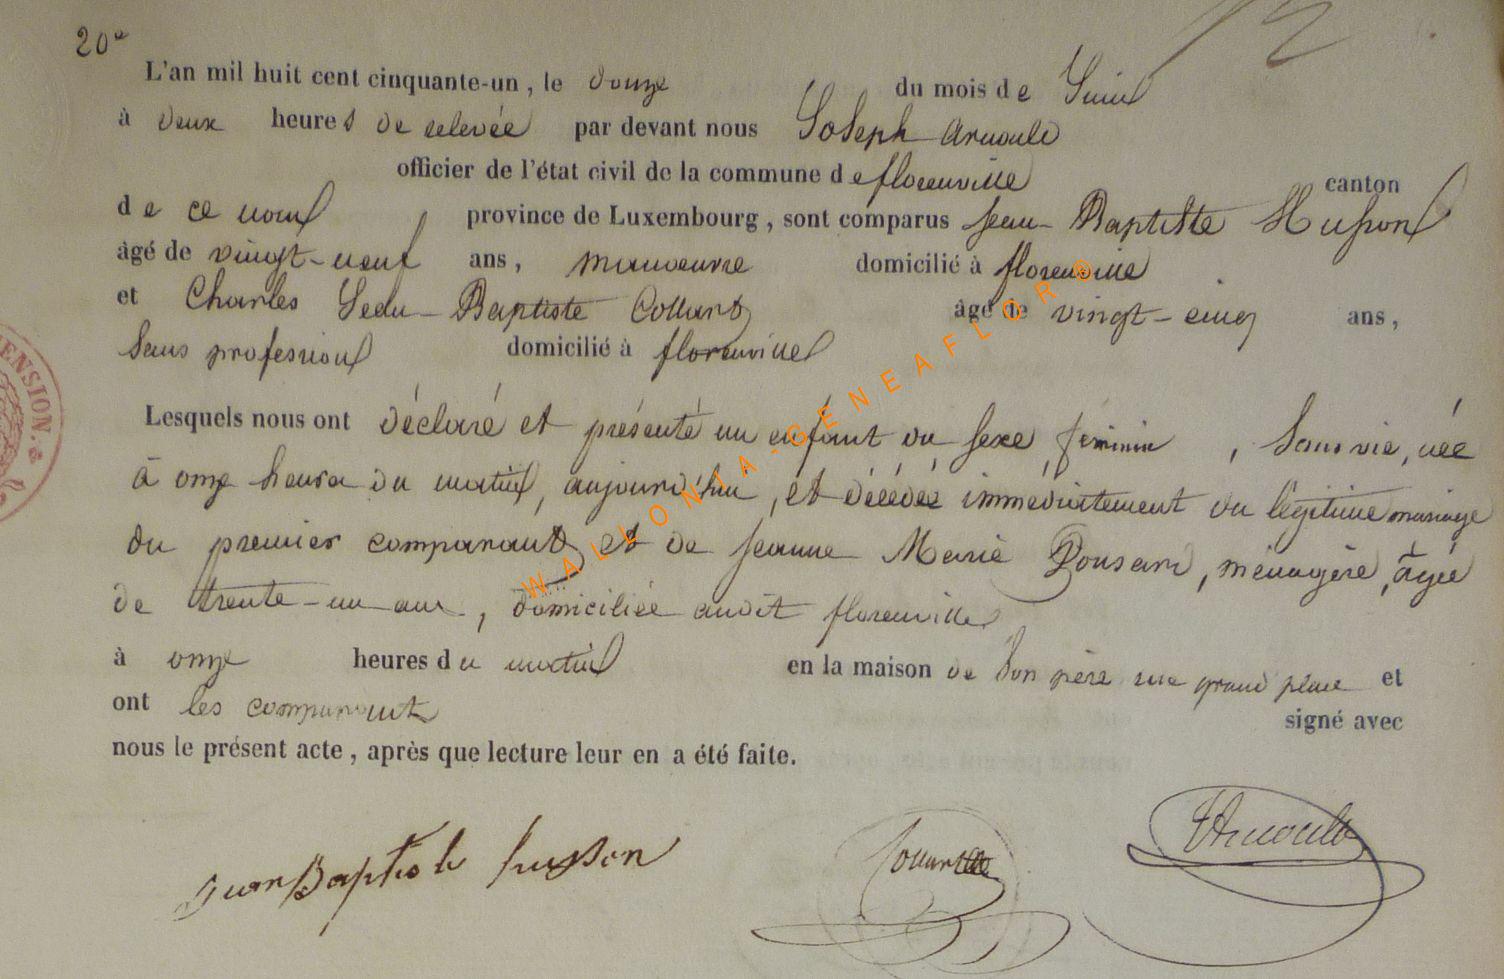 20e
L'an mil huit cent cinquante-un, le douze du mois de Juin
à deux heures de relevée par devant nous Joseph Arnould
officier de l'état civil de la commune de florenville canton
de ce nom province de Luxembourg, sont comparus Jean-Baptiste Husson
âgé de vingt-neuf ans, manoeuvre domicilié à florenville
et Charles Jean-Baptiste Collard âgé de vingt-cinq ans,
sans profession domicilié à florenville
Lesquels nous ont déclaré et présenté un enfant du sexe féminin, sans vie, née
à onze heures du matin, aujourd'hui, et décédée immédiatement du légitime mariage
du premier comparant et de Jeanne Marie Ponsard, ménagère, âgée
de trente-un ans, domiciliée audit florenville
à onze heures du matin en la maison de son père rue grand place et
ont les comparants signé avec
nous le présent acte, après que lecture leur en a été faite.
Jean Baptiste husson Collard Arnould
ENSION.
WALLONIA-GENEAFLOR©